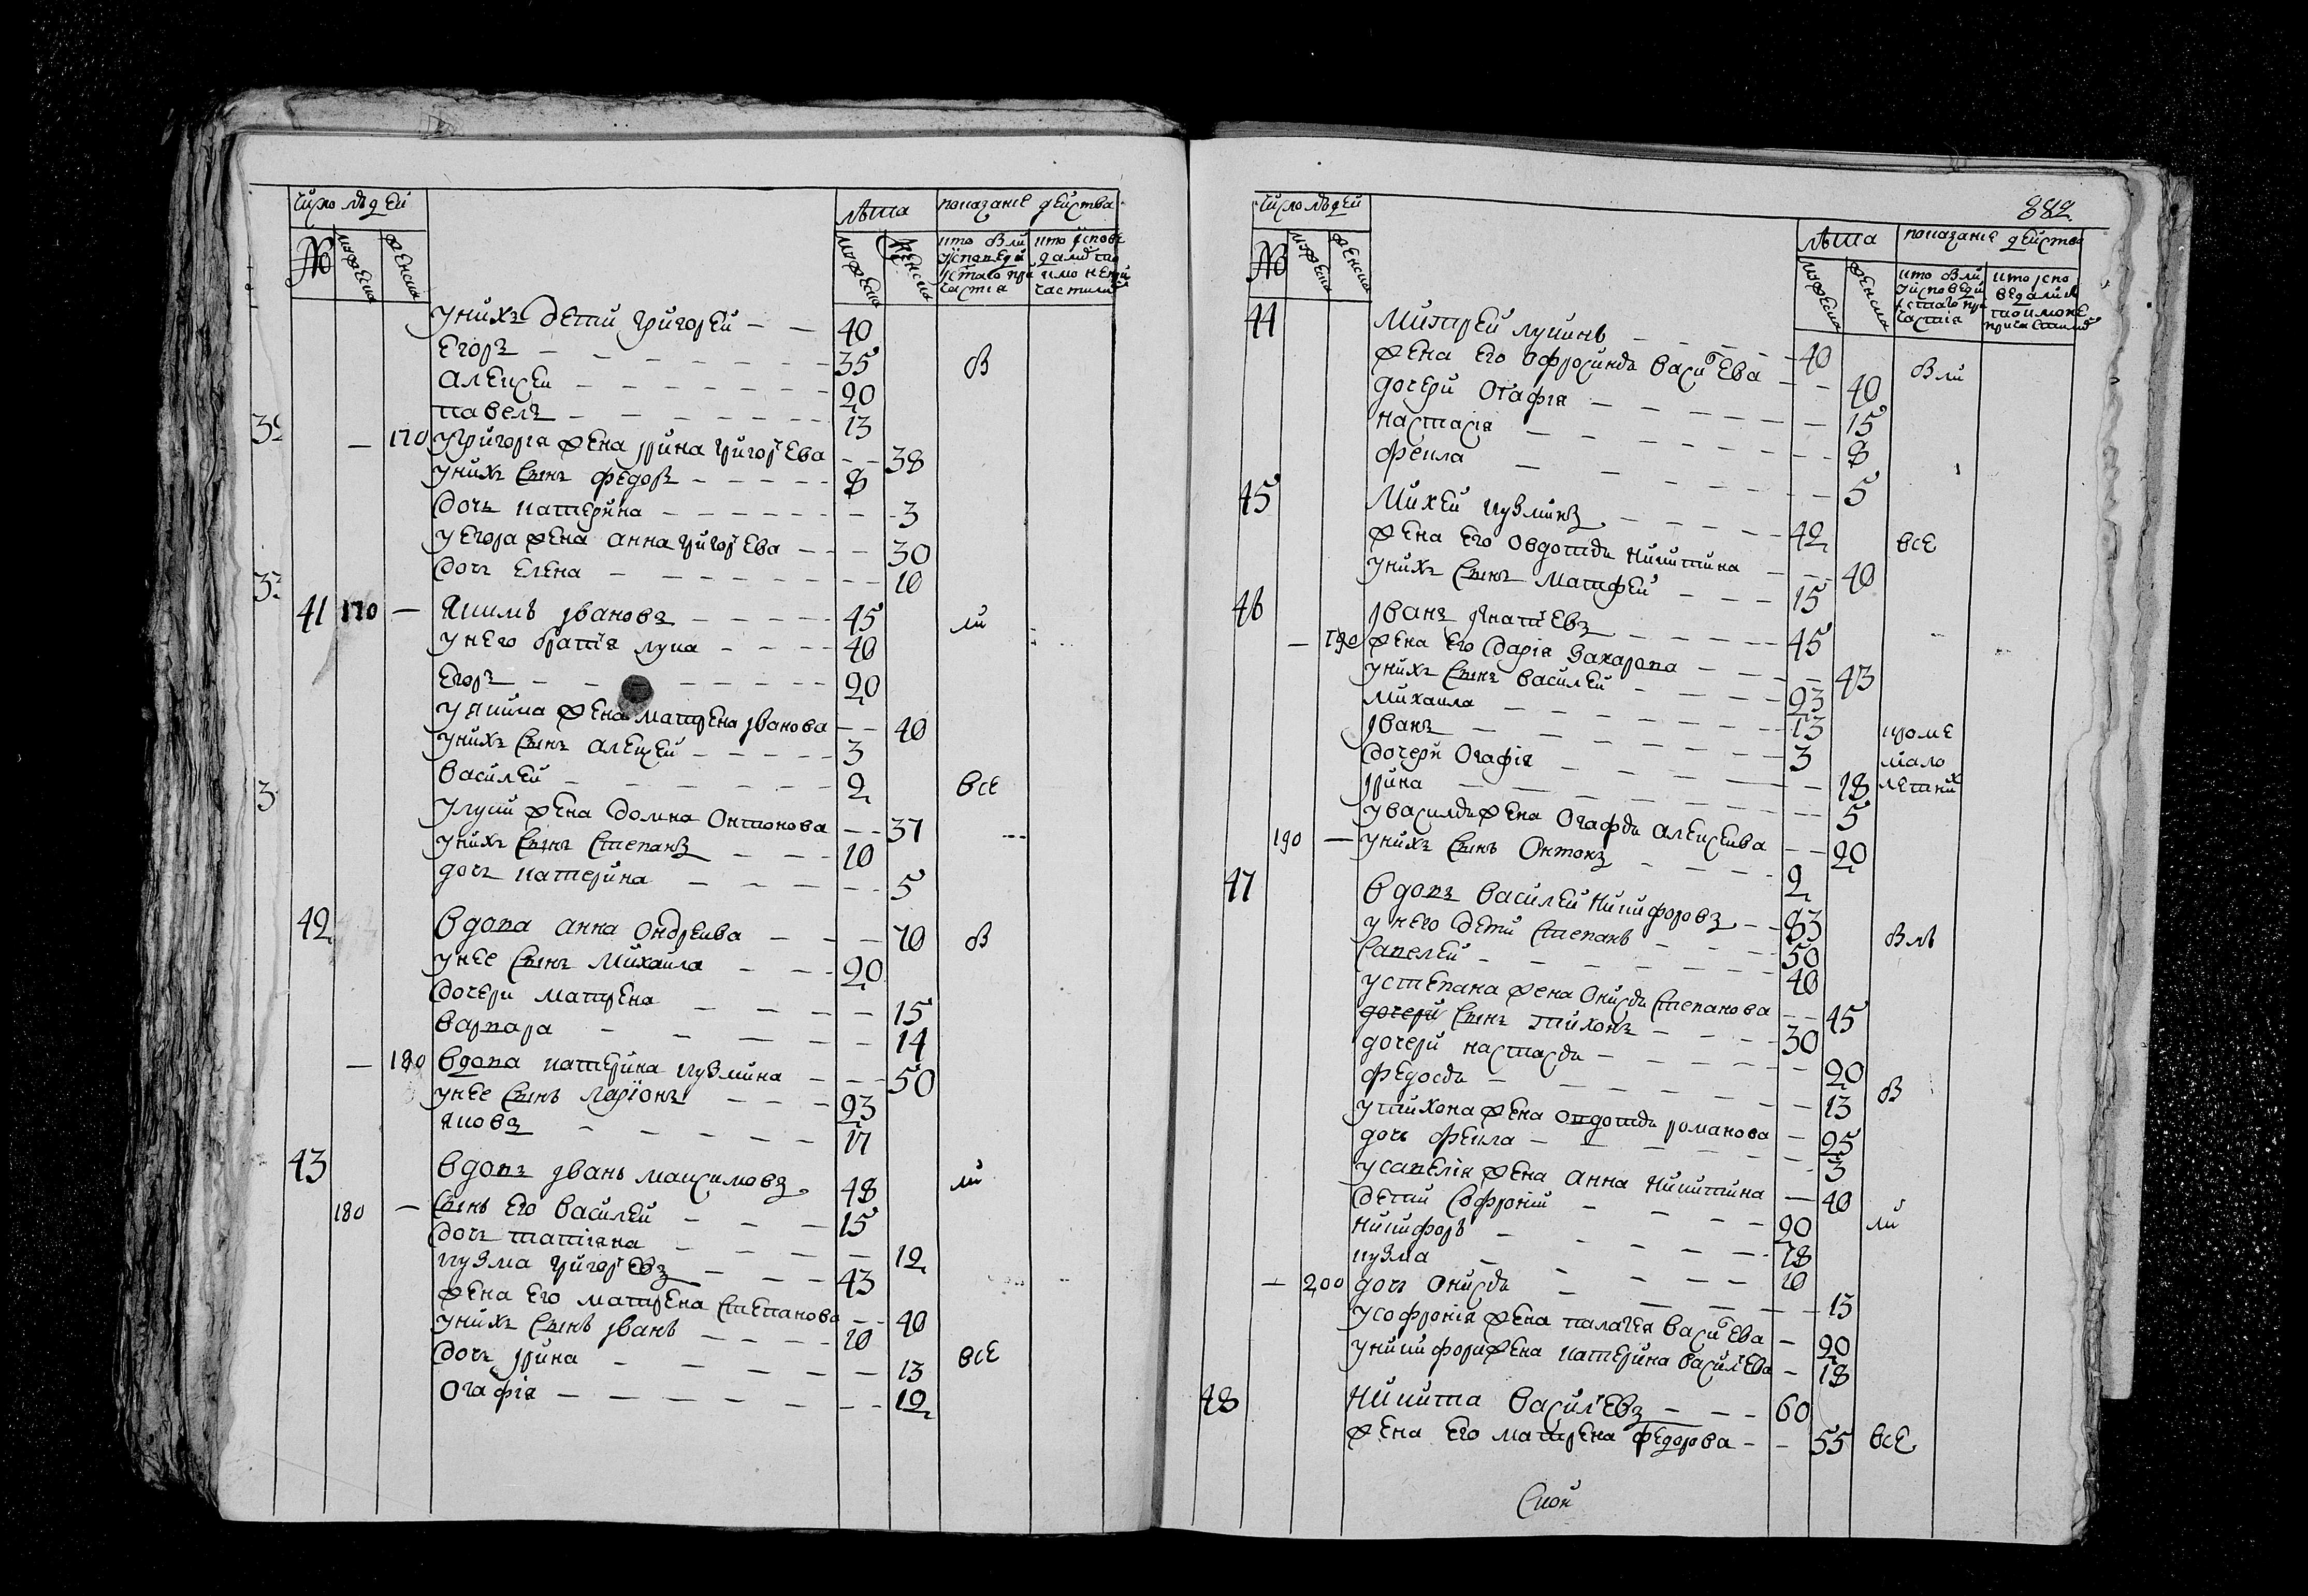 число людей
лѣта
показание действа
№
мужеска
женска
мужеска
женска
кто были у исповеди и святаго причастия
кто исповедались токмо не причастились
у них дети Григорей — — 40
Егоръ — 35
в
Алексей — 20
Павелъ — 13
— 170 у Григорья жена Ирина Григорьева — 38
у них сынъ Федоръ — 8
дочь Катерина — 3
у Егора жена Анна Григорьева — 30
дочь Елена — 10
41 170 — Якимъ Ивановъ — 45
ли
у него братия Лука — 40
Егоръ — 20
у Якима жена Матрена Иванова — 40
у них сынъ Алексей — 3
Василей — 2
все
у Луки жена Домна Онтонова — 37
у них сынъ Степанъ — 10
дочь Катерина — 5
42 вдова Анна Ондреева — 70
в
у нее сынъ Михаила — 20
дочери Матрена — 15
Варвара — 14
— 180 вдова Катерина Кузмина — 50
у нее сынъ Ларионъ — 23
Яковъ — 17
43 вдовъ Иванъ Максимовъ 48
ли
180 — сынъ его Василей — 15
дочь Татияна — 12
Кузма Григорьевъ — 43
жена его Матрена Степанова — 40
у них сынъ Иванъ — 10
дочь Ирина — 13
все
Огафия — 12
382
число людей
лѣта
показание действа
№
мужеска
женска
мужеска
женска
кто были у исповеди и святаго причастия
кто исповедались токмо не причастились
44 Митрей Лукинъ — 40
жена его Офросинья Васильева — 40
были
дочери Огафия — 15
Настасия — 8
Фекла — 5
45 Михей Кузминъ — 42
жена его Овдотья Никитина — 40
все
у них сынъ Матфей — 15
46 Иванъ Игнатьевъ — 45
— 190 жена его Дария Захарова — 43
у них сынъ Василей — 23
Михаила — 13
Иванъ — 3
кроме
дочери Огафия — 18
мало
Ирина — 5
летних
у Василья жена Огафья Алексеева — 20
190 — у них сынъ Онтонъ — 2
47 вдовъ Василей Никифоровъ — 83
у него дети Степанъ — 50
Савелей — 40
у Степана жена Онисья Степанова — 45
дочери сынъ Тихонъ — 30
дочери Настасья — 20
Федосья — 13
в
у Тихона жена Овдотья Романова — 25
дочь Фекла — 3
у Савелия жена Анна Никитина — 40
дети Софроний — 20
ли
Никифоръ — 18
Кузма — 10
— 200 дочь Онисья — 13
у Софрония жена Палагея Васильева — 20
у Никифора жена Катерина Васильева — 18
48 Никита Васильевъ — 60
жена его Матрена Федорова — 55
все